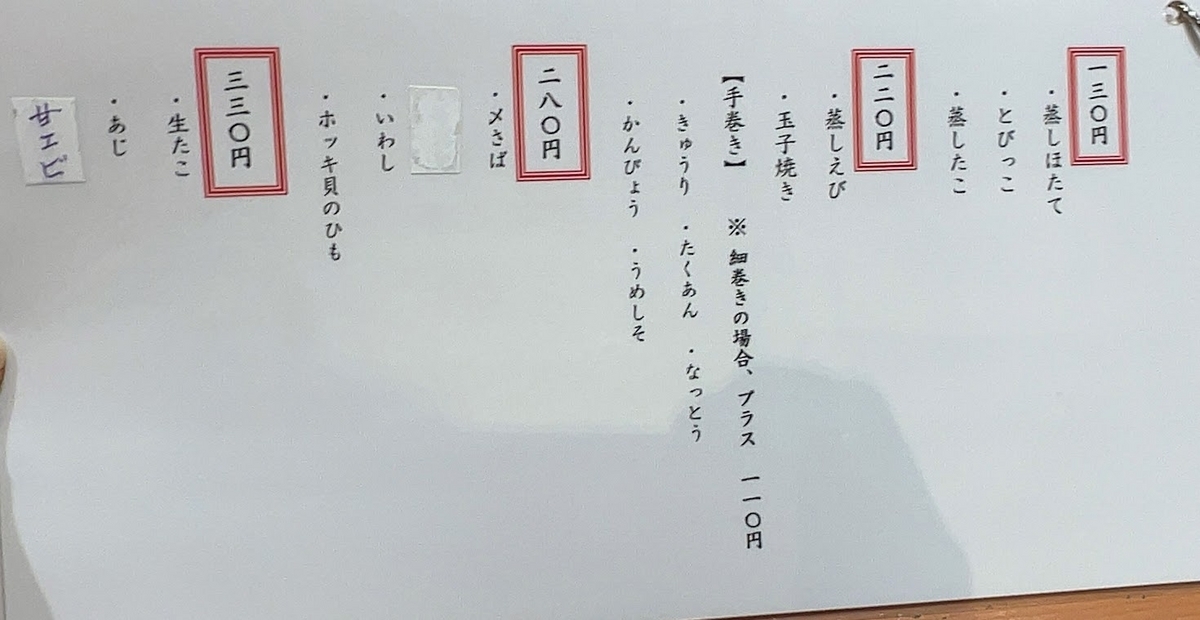 一三〇円
・蒸しほたて
・とびっこ
・蒸したこ
二二〇円
・蒸しえび
・玉子焼き
【手巻き】 ※ 細巻きの場合、プラス 一一〇円
・きゅうり ・たくあん ・なっとう
・かんぴょう ・うめしそ
二八〇円
・〆さば
・いわし
・ホッキ貝のひも
三三〇円
・生たこ
・あじ
甘エビ